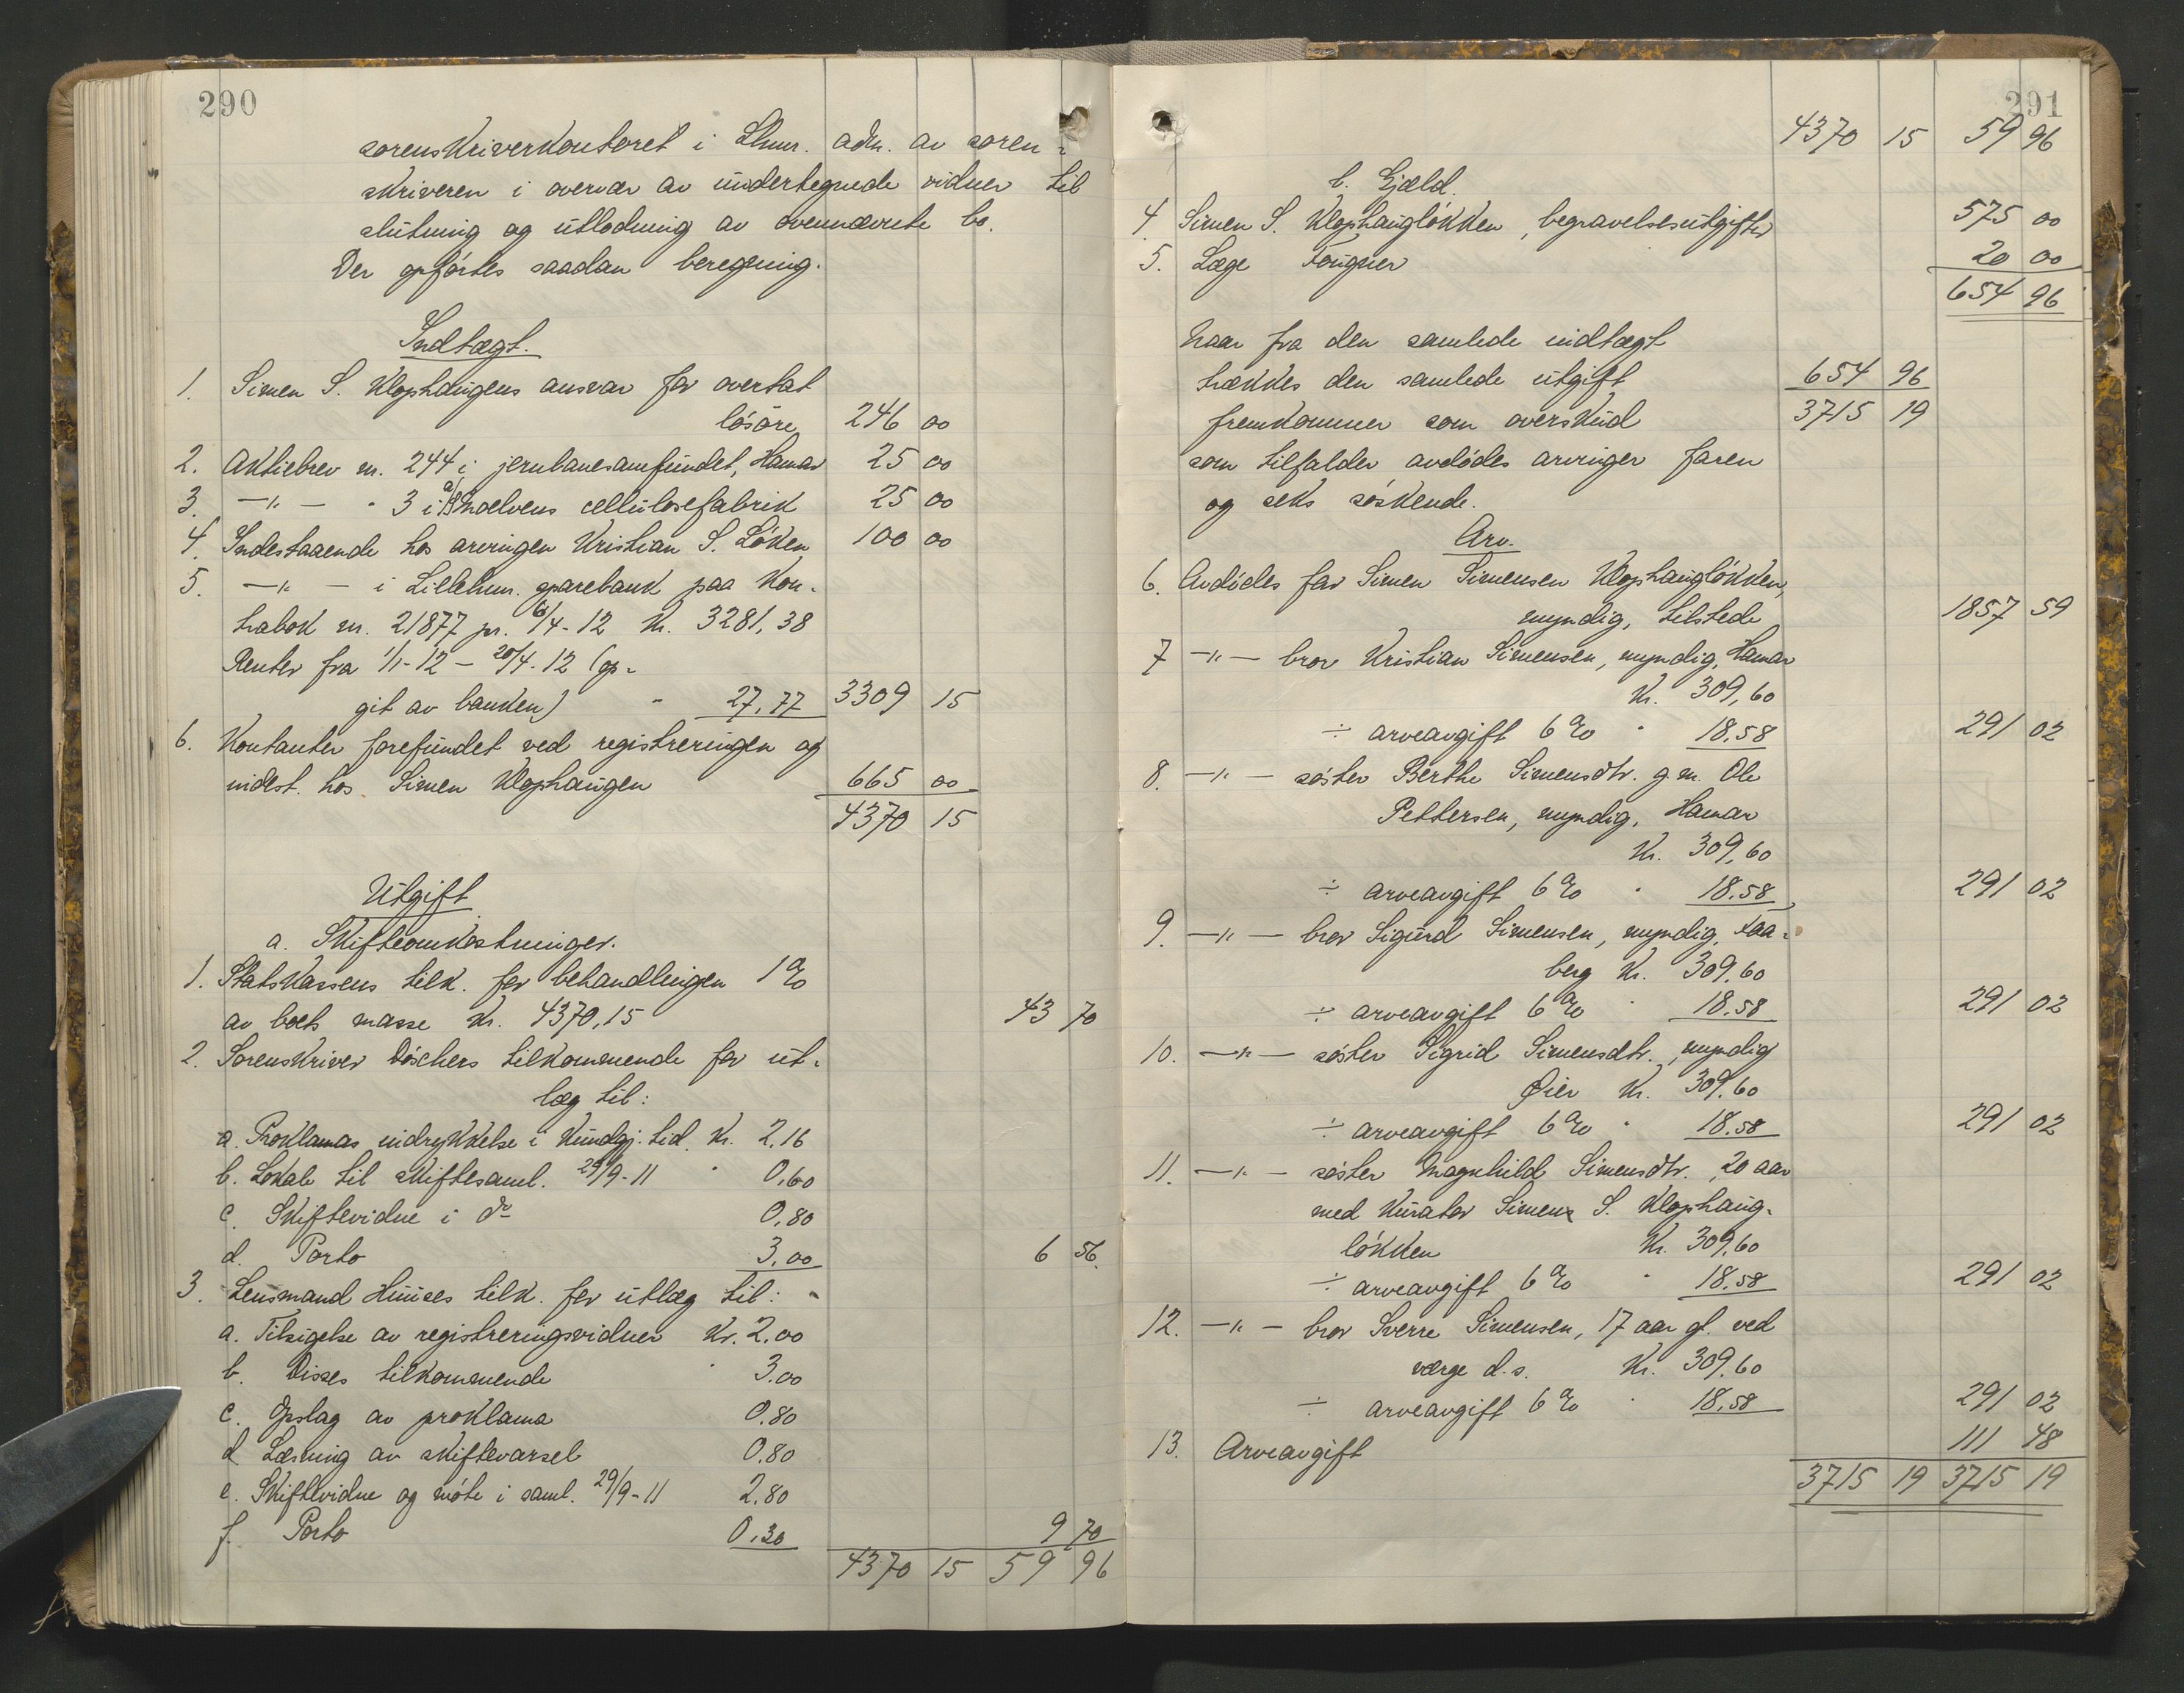 290
sorenskriverkontoret i Lhmr. adm. av soren-
skriveren i overvær av undertegnede vidner til
slutning og utlodning av ovennævnte bo.
Der opførtes saadan beregning.
Indtægt.
1. Simen S. Klophaugens ansvar for overtat
løsøre 246 00
2. Aktiebrev nr. 244 i jernbanesamfundet, Hamar 25 00
3. —"— " 3 i A/S Moelvens cellulosefabrik 25 00
4. Indestaaende hos arvingen Kristian S. Løken 100 00
5. —"— i Lillehm. sparebank paa kon-
trabok nr. 21877 pr. 6/4-12 Kr. 3281,38
Renter fra 1/1-12 – 20/4-12 (op-
git av banken) " 27,77 3309 15
6. Kontanter forefundet ved registreringen og
indest. hos Simen Klophaugen 665 00
4370 15
Utgift
a. Skifteomkostninger.
1. Statskassens tilk. for behandlingen 1 %
av boets masse Kr. 4370,15 43 70
2. Sorenskriver Døschers tilkommende for ut-
læg til:
a. Proklamas indrykkelse i Kundgj. tid. Kr. 2,16
b. Lokale til skiftesaml. 29/9-11 " 0,60
c. Skiftevidne i do 0,80
d. Porto 3,00 6 56.
3. Lensmand Huuses tilk. for utlæg til:
a. Tilsigelse av registreringsvidner Kr. 2,00
b. Disses tilkommende " 3.00
c. Opslag av proklama 0.80
d. Læsning av skiftevarsel 0.80
e. Skiftevidne og møte i saml. 29/9-11 2.80
f. Porto 0,30 9 70
4370 15 59 96
291
4370 15 59 96
b. Gjæld.
4. Simen S. Klophaugløkken, begravelsesutgifter 575 00
5. Læge Fougner 20 00
654 96
Naar fra den samlede indtægt
trækkes den samlede utgift 654 96
fremkommer som overskud 3715 19
som tilfalder avdødes arvinger faren
og seks søskende.
Arv.
6. Avdødes far Simen Simensen Klophaugløkken,
myndig, tilstede 1857 59
7 —"— bror Kristian Simensen, myndig, Hamar
Kr. 309,60
÷ arveavgift 6 % " 18.58 291 02
8. —"— søster Berthe Simensdtr. g.m. Ole
Pettersen, myndig, Hamar
Kr. 309,60
÷ arveavgift 6 % " 18.58 291 02
9. —"— bror Sigurd Simensen, myndig, Faa-
berg Kr. 309.60
÷ arveavgift 6 % " 18.58 291 02
10. —"— søster Sigrid Simensdtr., myndig
Øier Kr. 309.60
÷ arveavgift 6 % " 18.58 291 02
11. —"— søster Magnhild Simensdtr., 20 aar
med kurator Simen S. Klophaug-
løkken Kr. 309.60
÷ arveavgift 6 % " 18.58 291 02
12. —"— bror Sverre Simensen, 17 aar gl. ved
værge d.s. Kr. 309.60
÷ arveavgift 6 % " 18.58 291 02
13. Arveavgift 111 48
3715 19 3715 19